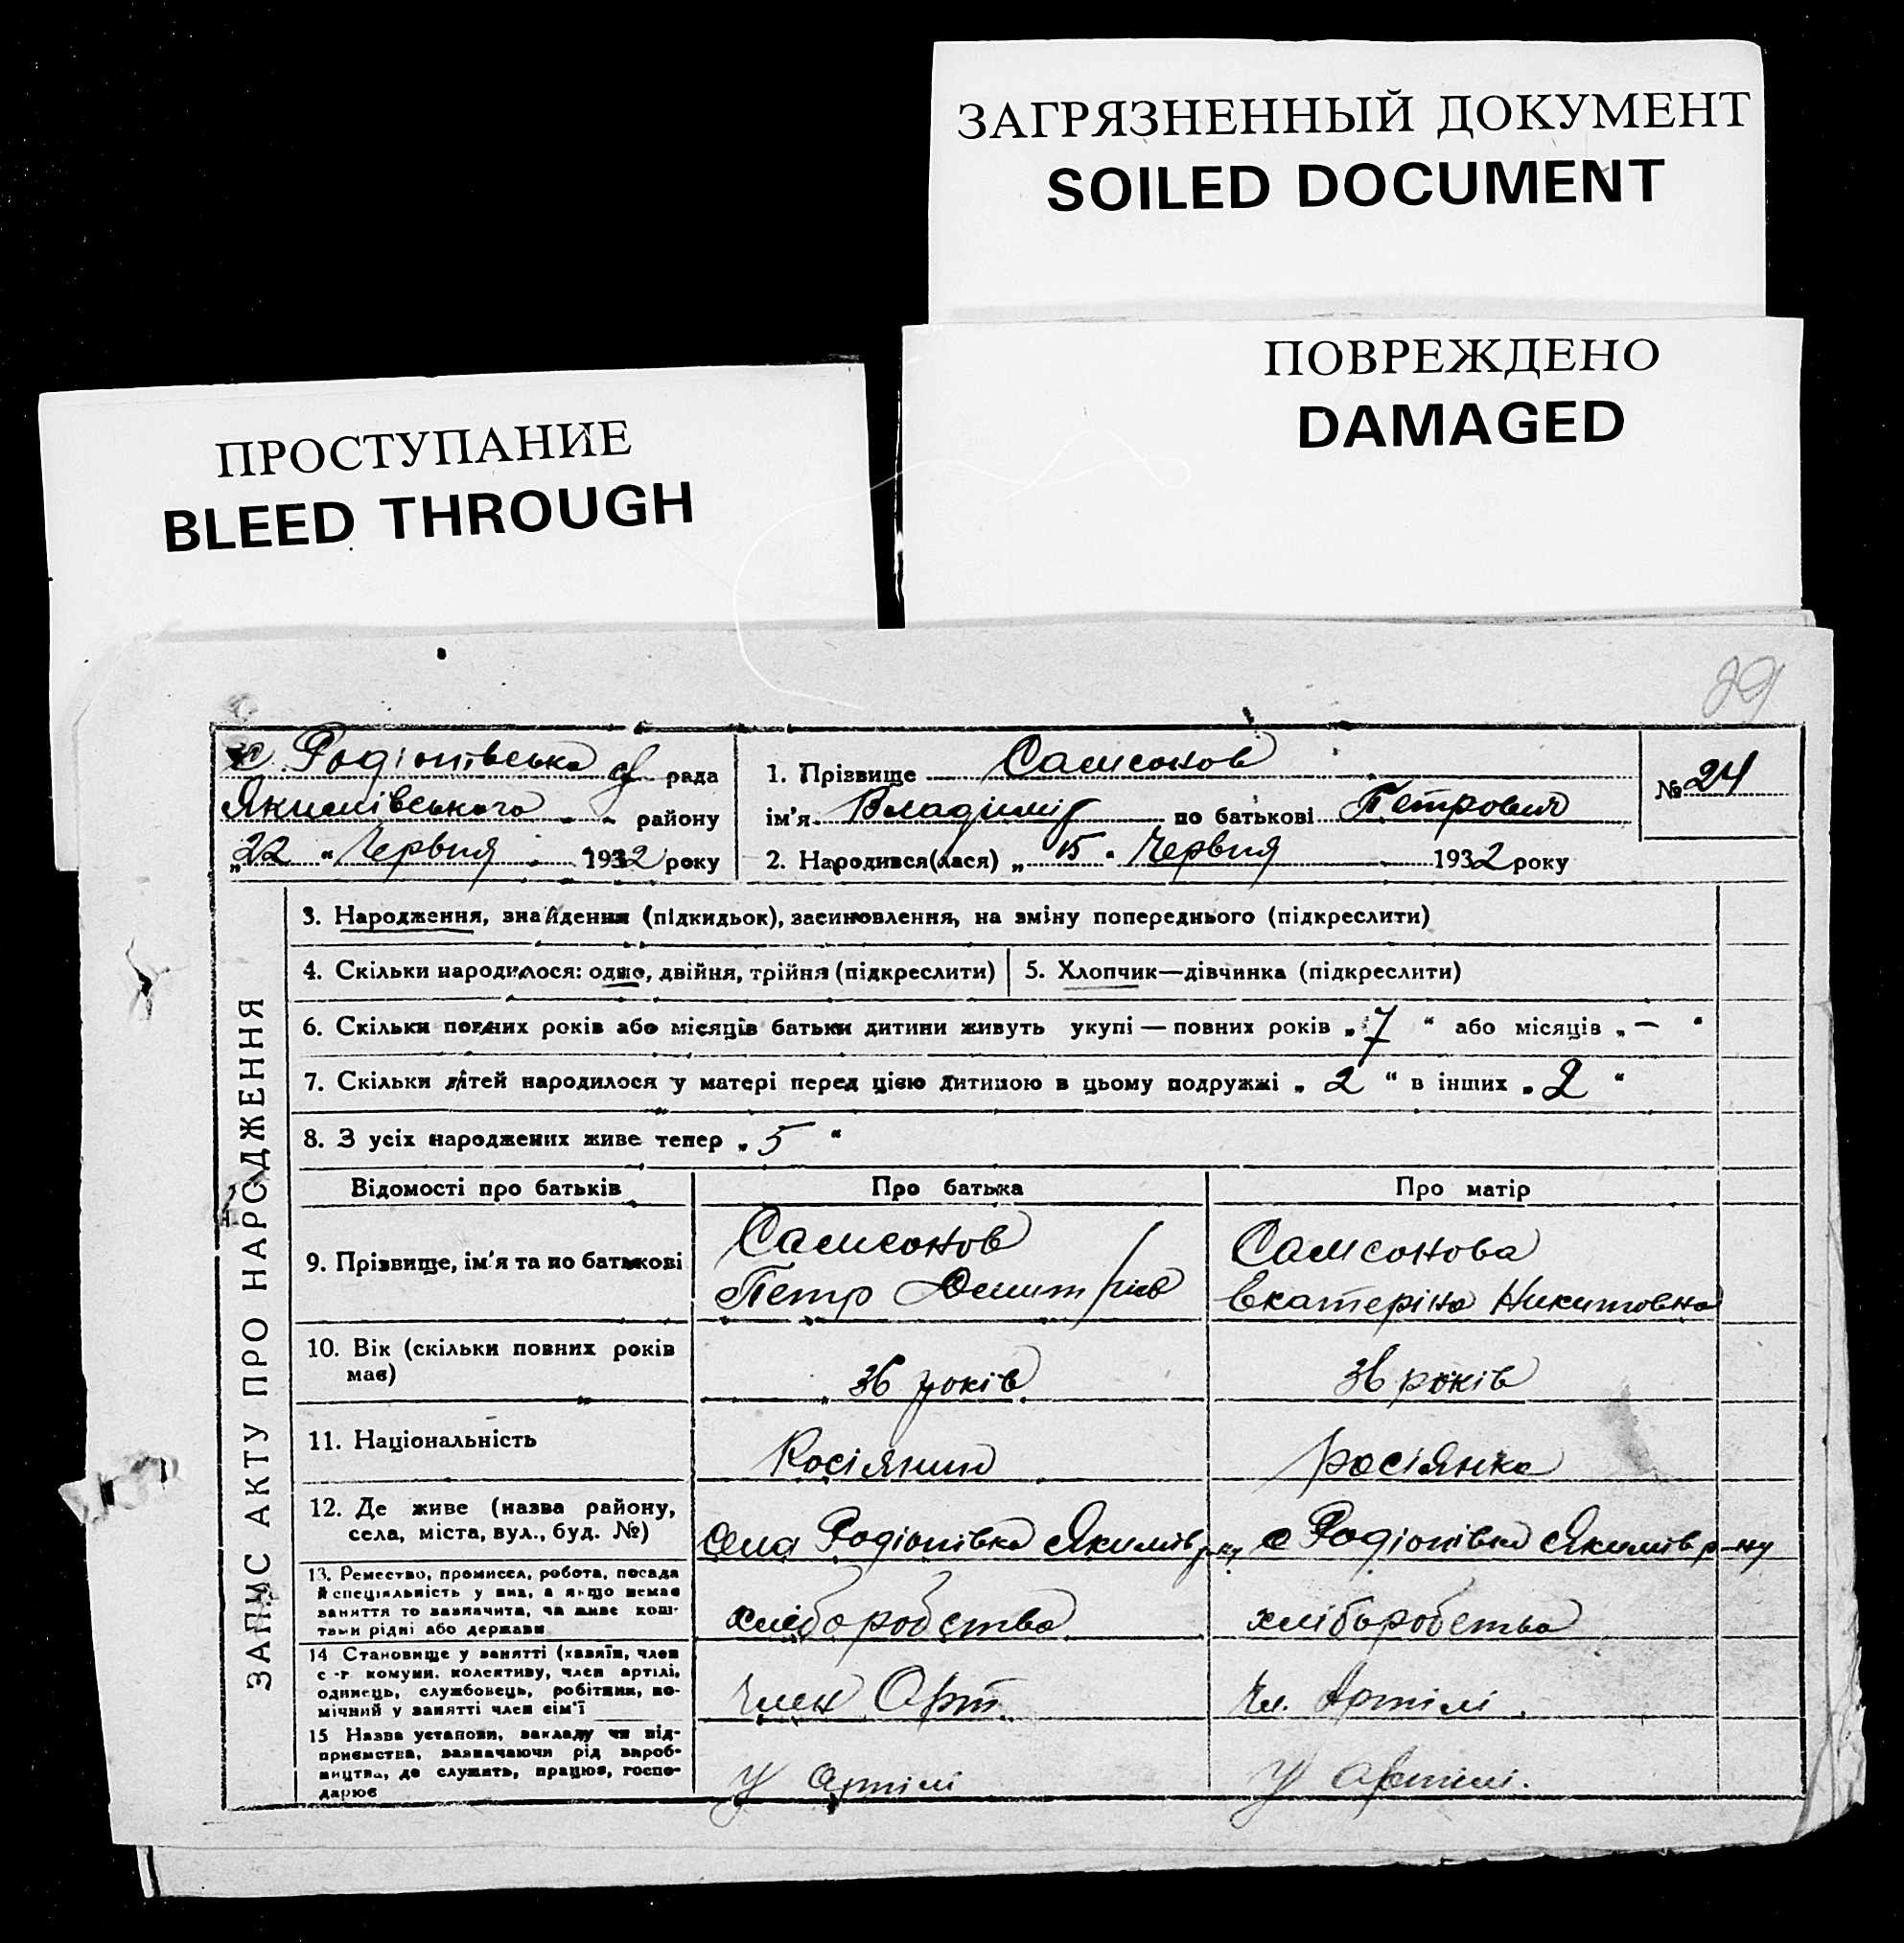 ЗАГРЯЗНЕННЫЙ ДОКУМЕНТ
SOILED DOCUMENT
ПОВРЕЖДЕНО
DAMAGED
ПРОСТУПАНИЕ
BLEED THROUGH
с. Родіонівська с/ рада
Якимівського району
„22“ Червня 1932 року
1. Прізвище Самсонов
ім'я Владімір по батькові Петрович
2. Народився(лася) „15“ Червня 1932 року
№ 24
ЗАПИС АКТУ ПРО НАРОДЖЕННЯ
3. Народження, знайдення (підкидьок), засиновлення, на зміну попереднього (підкреслити)
4. Скільки народилося: одно, двійня, трійня (підкреслити) 5. Хлопчик—дівчинка (підкреслити)
6. Скільки повних років або місяців батьки дитини живуть укупі — повних років „7“ або місяців „—“
7. Скільки дітей народилося у матері перед цією дитиною в цьому подружжі „2“ в інших „2“
8. З усіх народжених живе тепер „5“
Відомості про батьків Про батька Про матір
9. Прізвище, ім'я та по батькові
Самсонов
Петр Дмитрів
Самсонова
Екатеріна Никитовна
10. Вік (скільки повних років
має)
36 років
36 років
11. Національність
Росіянин
росіянка
12. Де живе (назва району,
села, міста, вул., буд. №)
села Родіонівка Якимів р-ну
с Родіонівка Якимів р-ну
13. Ремество, промисел, робота, посада
й спеціяльність у яких, а якщо немає
заняття то зазначити, чи живе кош-
тами рідні або держави
хліборобства
хліборобства
14 Становище у занятті (хазяїн, член
с.-г. комуни, колективу, член артілі,
одинець, службовець, робітник, по-
мічний у занятті член сім'ї
член Орт.
Чл. Артілі
15 Назва установи, закладу чи під-
приємства, зазначаючи рід вироб-
ництва, де служить, працює, госпо-
дарює
У артілі
У артілі.